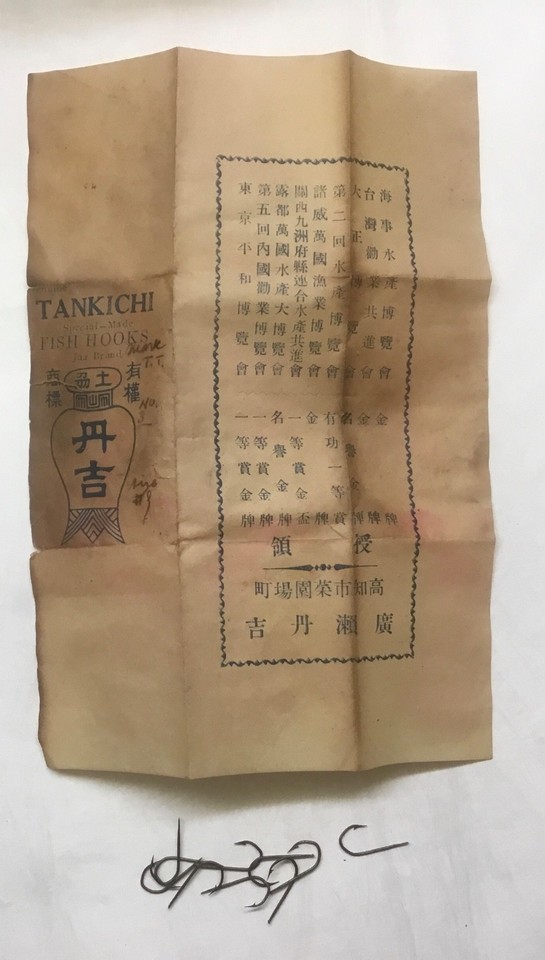 TANKICHI
Special-Made
FISH HOOKS
Jar Brand
Mark
T.T.
NO.
有權
商標
丹吉
海事水產博覽會 金牌
台灣勸業共進會 金牌
大正博覽會 名譽金牌
第二回水產博覽會 有功一等賞
諾威萬國漁業博覽會 金牌
關西九洲府縣連合水產共進會 一等賞金盃
露都萬國水產大博覽會 名譽金牌
第五回內國勸業博覽會 一等賞金牌
東京平和博覽會 一等賞金牌
授領
高知市菜園場町
廣瀨丹吉